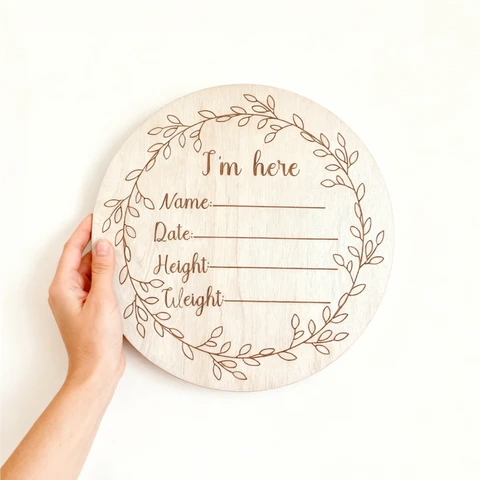 I'm here
Name:
Date:
Height
Weight